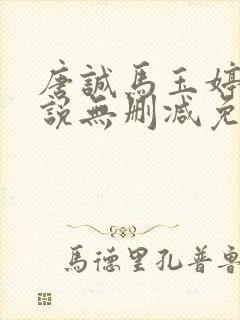 唐誠馬玉婷
說無刪減免
馬德里孔普魯